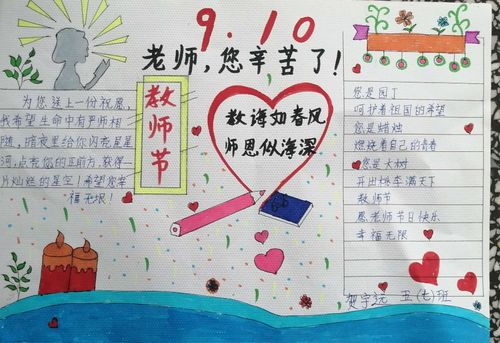 9.10
老师，您辛苦了！
教师节
教诲如春风
师恩似海深
为您送上一份祝愿，
我希望生命中有严师相
随，暗夜里给你闪亮星星
河，点亮您的正前方，获得一
片灿烂的星空！希望您幸
福无垠！
您是园丁
呵护着祖国的希望
您是蜡烛
燃烧着自己的青春
您是大树
开出桃李满天下
教师节
愿老师节日快乐
幸福无限
贺宇远 五（七）班